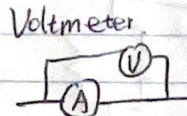 Voltmeter
V
A